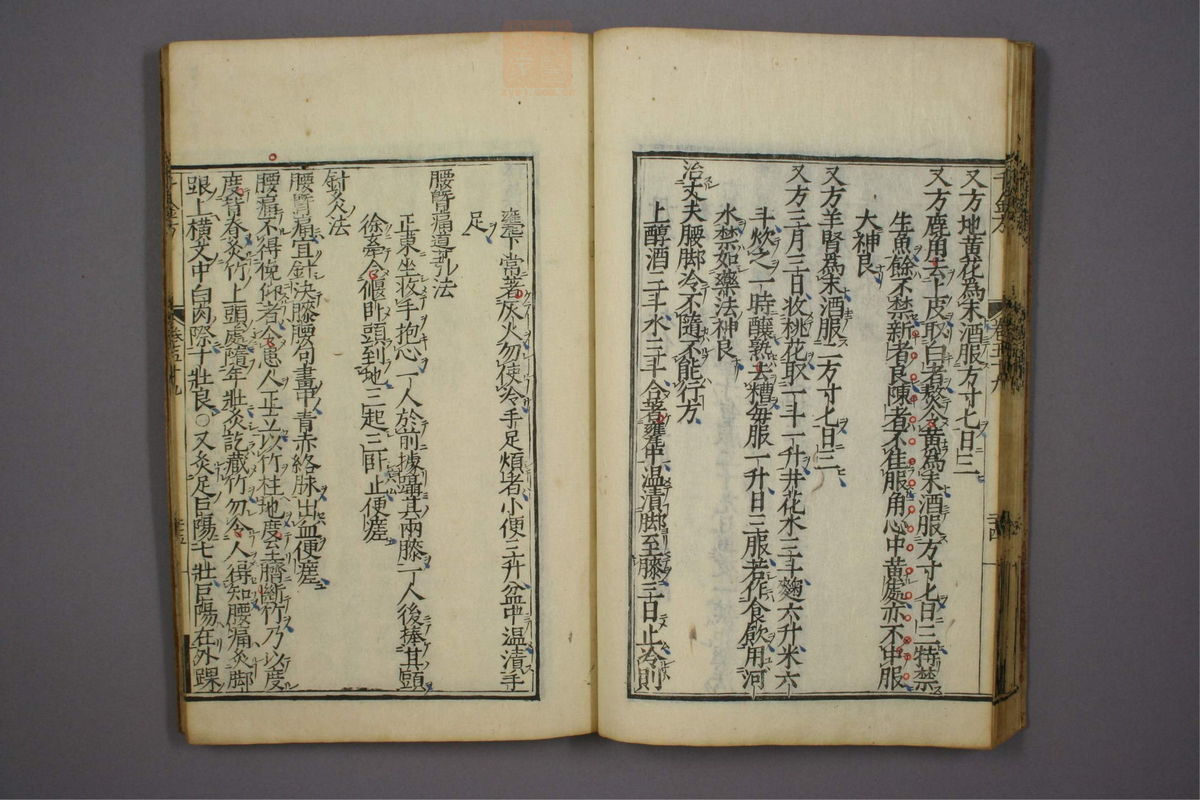 又方地黄花為末酒服方寸匕日三
又方鹿角去上皮取白者熬令黄為末酒服方寸匕日三特禁
生魚餘不禁新者良陳者不佳服角心中黄處亦不中服
大神良
又方羊腎為末酒服二方寸匕日三
又方三月三日收桃花取一斗一升井花水三斗麹六升米六
斗炊之一時釀熟去糟毎服一升日三服若作食飲用河
水禁如藥法神良
治丈夫腰脚冷不隨不能行方
上醇酒三斗水三斗合著甕中温漬脚至膝三日止冷則
甕下當著灰火勿使冷手足煩者小便三升盆中温漬手
足
腰臂痛導引法
正東坐收手抱心一人於前據躡其兩膝一人後捧其頭
徐牽令偃卧頭到地三起三卧止便瘥
針灸法
腰臂痛宜針決膝腰句畫中青赤絡脉出血便瘥
腰痛不得俛仰者令患人正立以竹柱地度至臍斷竹乃以度
度背脊灸竹上頭處隨年壯灸訖藏竹勿令人得知腰痛灸脚
跟上横文中白肉際十壯良○又灸足巨陽七壯巨陽在外踝
千金方
卷五十九